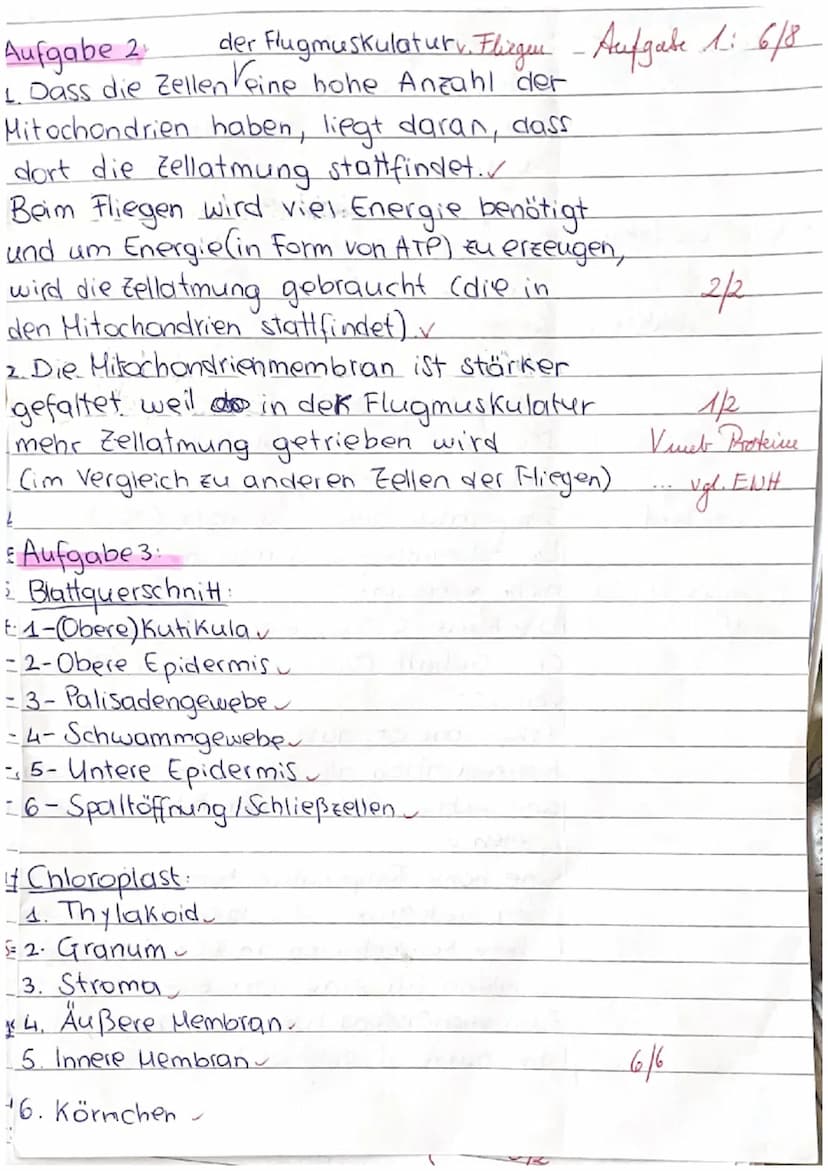 Aufgabe 2: der Flugmuskulatur v. Fliegen - Aufgabe 1: 6/8
1. Dass die Zellen eine hohe Anzahl der
Mitochondrien haben, liegt daran, dass
dort die Zellatmung stattfindet. ✓
Beim Fliegen wird viel Energie benötigt
und um Energie (in Form von ATP) zu erzeugen,
wird die Zellatmung gebraucht (die in 2/2
den Mitochondrien stattfindet). ✓
2. Die Mitochondrienmembran ist stärker
gefaltet weil in der Flugmuskulatur 1/2
mehr Zellatmung getrieben wird Proteine
(im Vergleich zu anderen Zellen der Fliegen) ... vgl. EWH
Aufgabe 3:
Blattquerschnitt:
1-(Obere) Kutikula ✓
2-Obere Epidermis ✓
3- Palisadengewebe ✓
4- Schwammgewebe ✓
5- Untere Epidermis ✓
6- Spaltöffnung/Schließzellen ✓
Chloroplast:
1. Thylakoid ✓
2. Granum ✓
3. Stroma ✓
4. Äußere Membran ✓
5. Innere Membran ✓ 6/6
6. Körnchen ✓